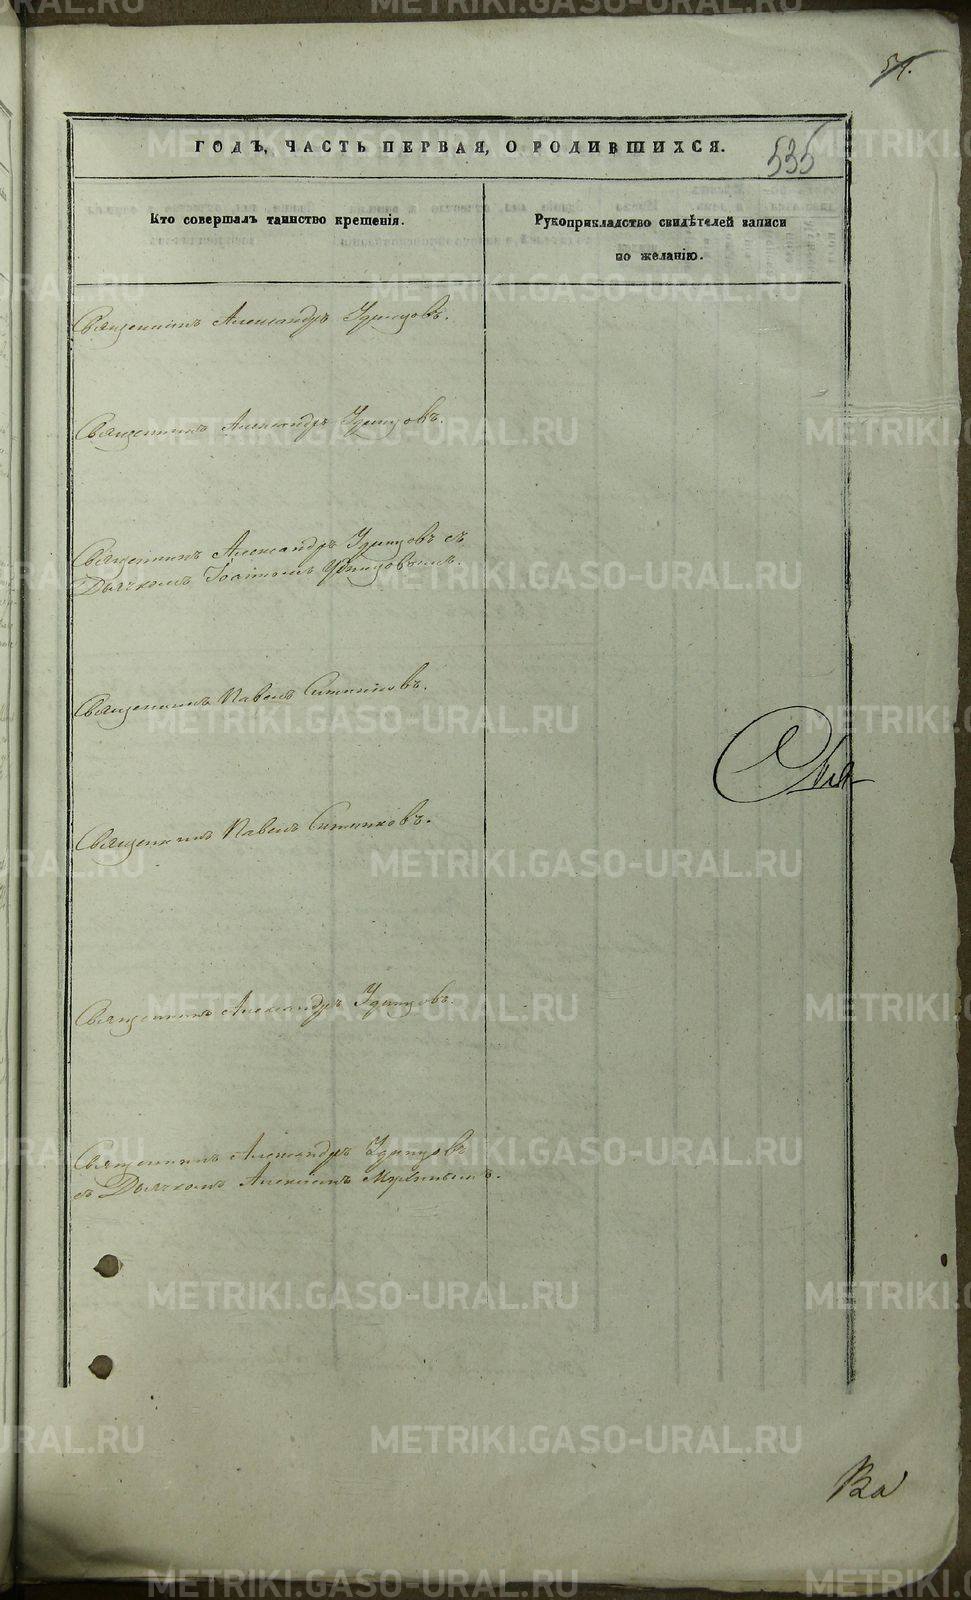 51.
ГОДЪ, ЧАСТЬ ПЕРВАЯ, О РОДИВШИХСЯ.
535
Кто совершалъ таинство крещенія.
Рукоприкладство свидѣтелей записи
по желанію.
Священникъ Александръ Удинцовъ.
Священникъ Александръ Удинцовъ.
Священникъ Александръ Удинцовъ съ
Дьячкомъ Іоанномъ Удинцовымъ.
Священникъ Павелъ Ситниковъ.
Священникъ Павелъ Ситниковъ.
Священникъ Александръ Удинцовъ.
Священникъ Александръ Удинцовъ
съ Дьячкомъ Алексіемъ
METRIKI.GASO-URAL.RU